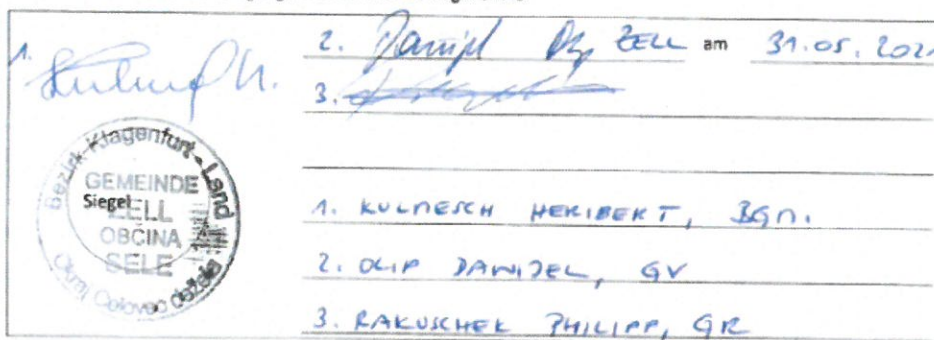 1.
2. Daniel Olip ZELL am 31.05.2021
3.
Bezirk Klagenfurt-Land
GEMEINDE
Siegel
ZELL
OBČINA
SELE
Okraj Celovec dežela
1. KULMESCH HERIBERT, BGM.
2. OLIP DANIJEL, GV
3. RAKUSCHEK PHILIPP, GR